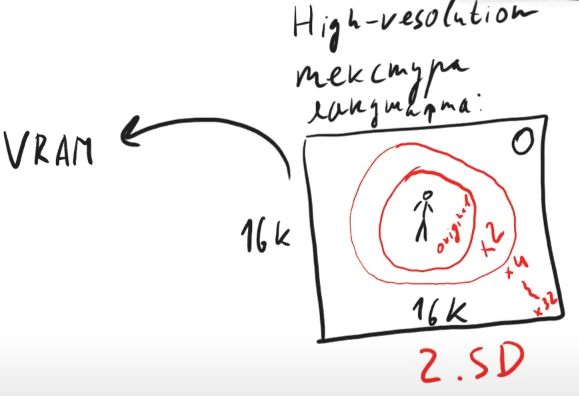 High-resolution
текстура
ландшафта:
VRAM
original
x2
x4
x32
16k
16k
2.5D